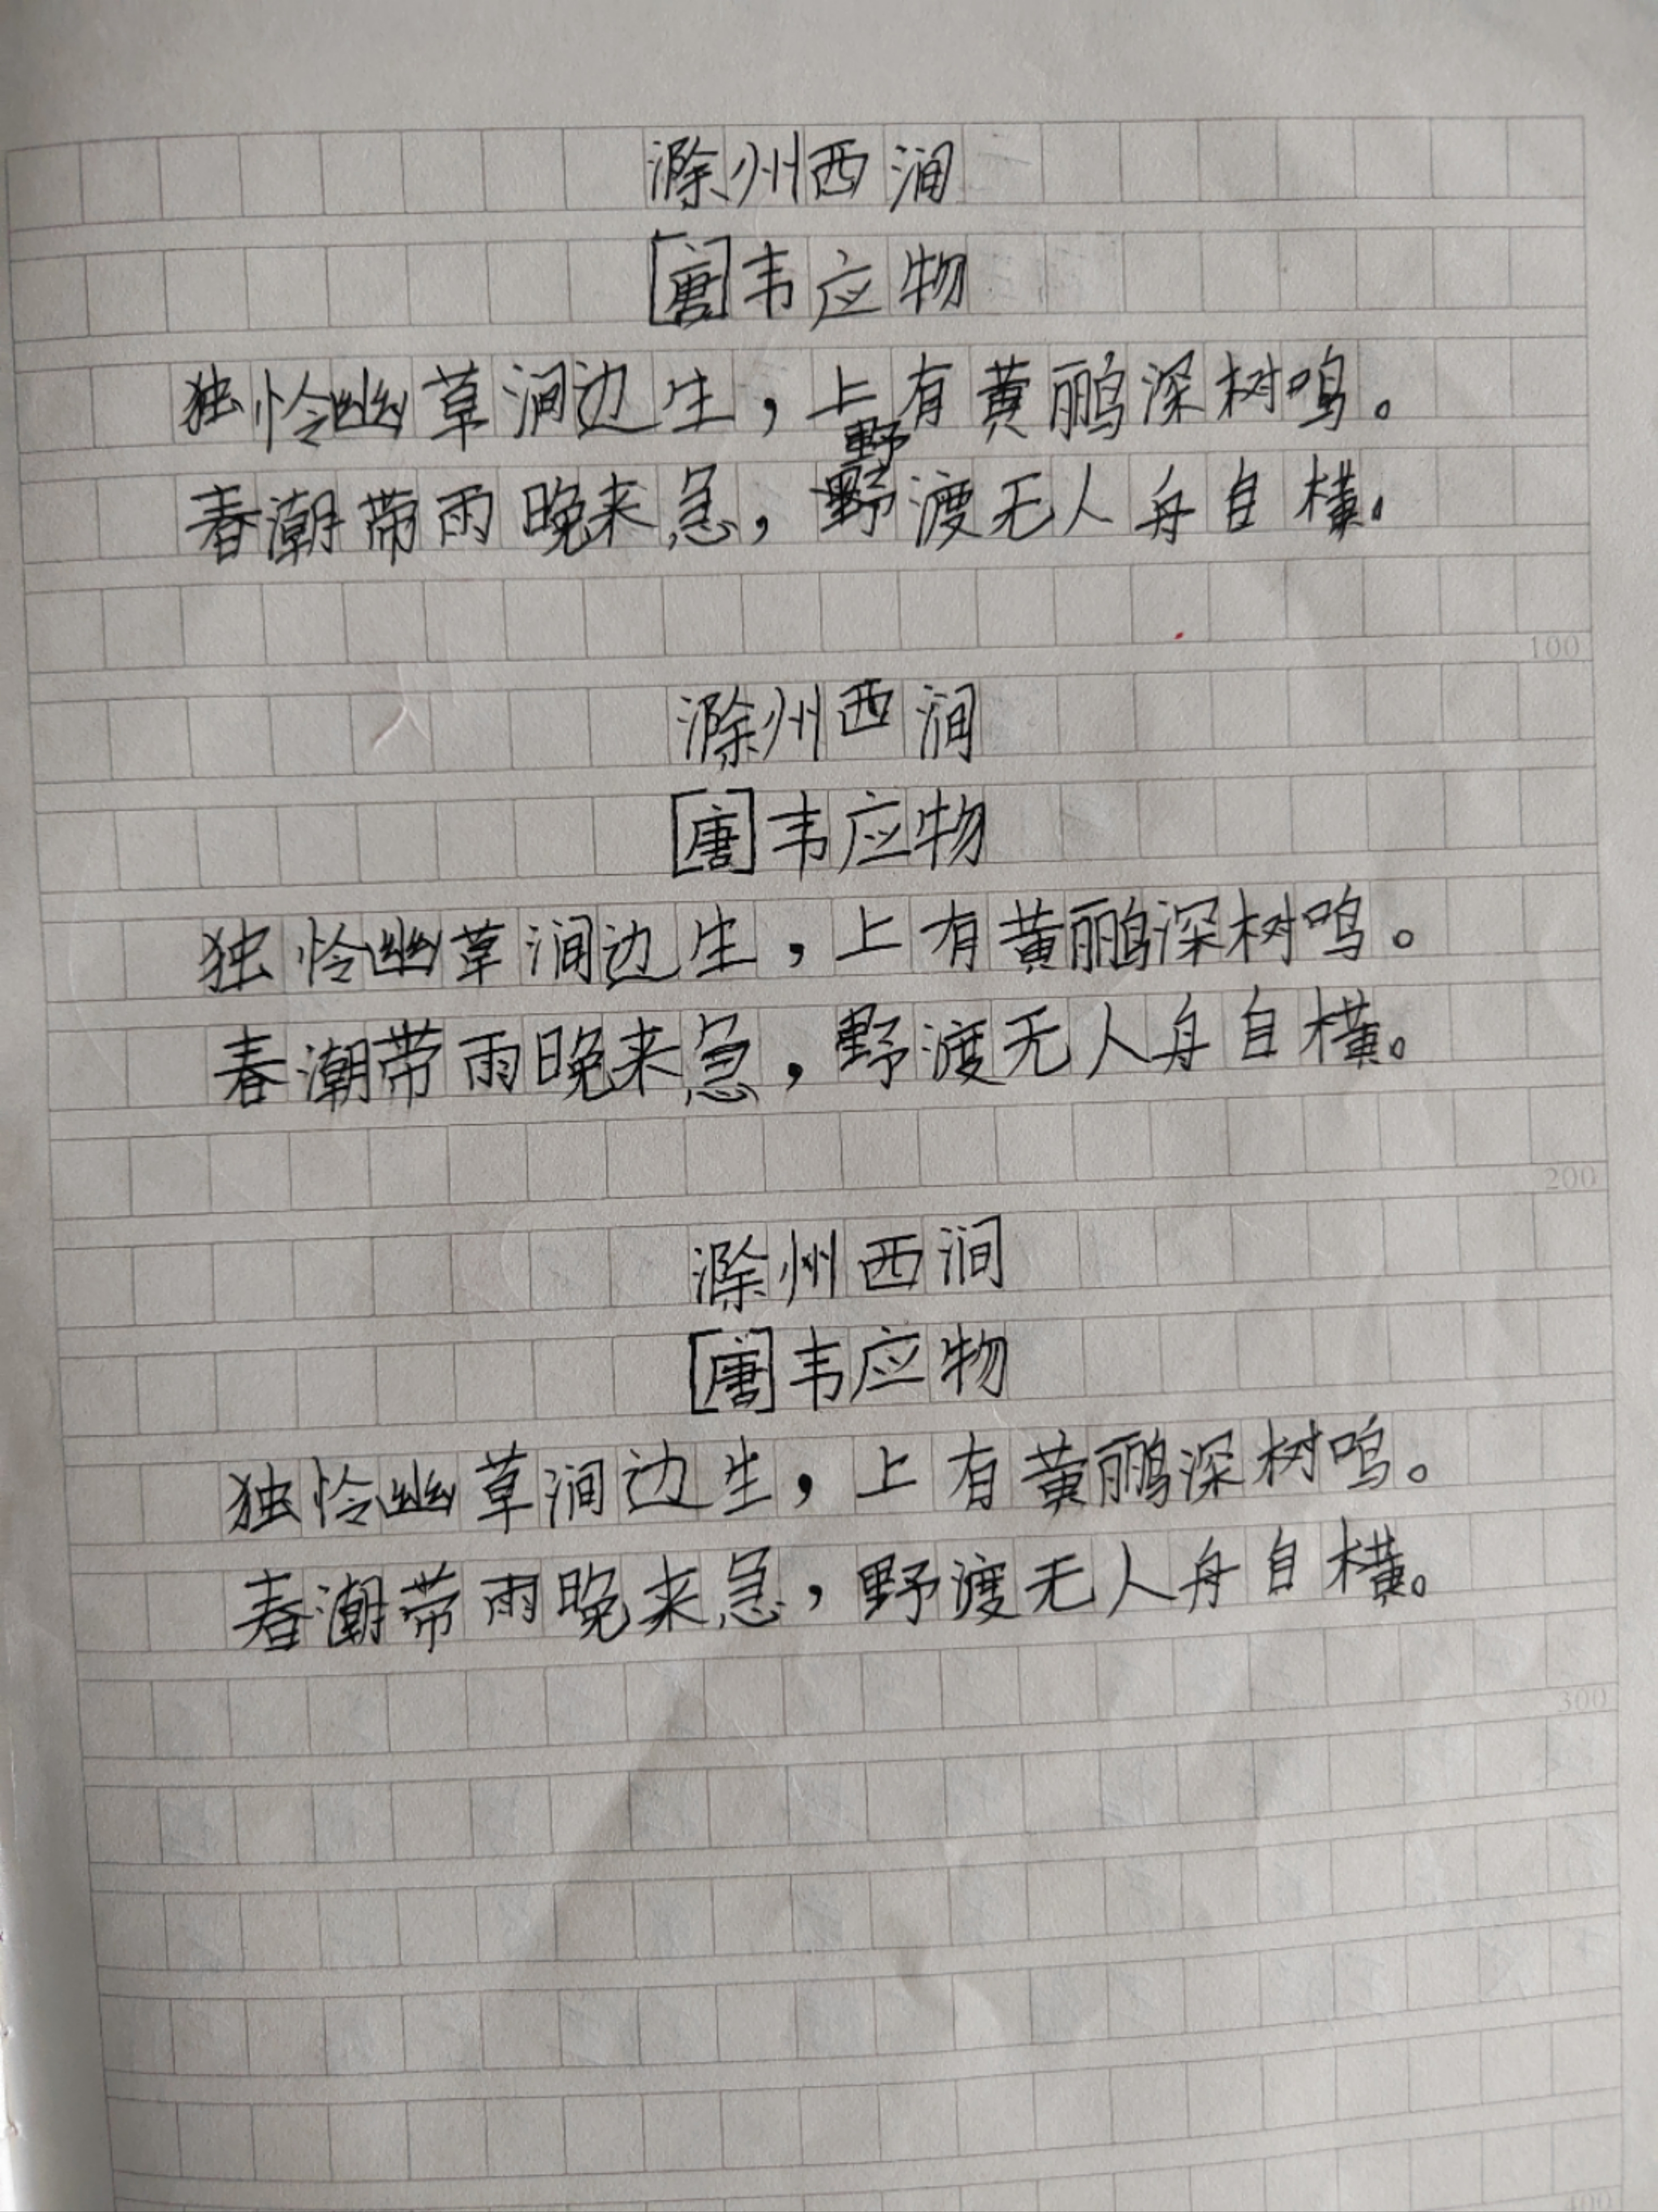 滁州西涧
[唐]韦应物
独怜幽草涧边生，上有黄鹂深树鸣。
野
春潮带雨晚来急，野渡无人舟自横。
100
滁州西涧
[唐]韦应物
独怜幽草涧边生，上有黄鹂深树鸣。
春潮带雨晚来急，野渡无人舟自横。
200
滁州西涧
[唐]韦应物
独怜幽草涧边生，上有黄鹂深树鸣。
春潮带雨晚来急，野渡无人舟自横。
300
400